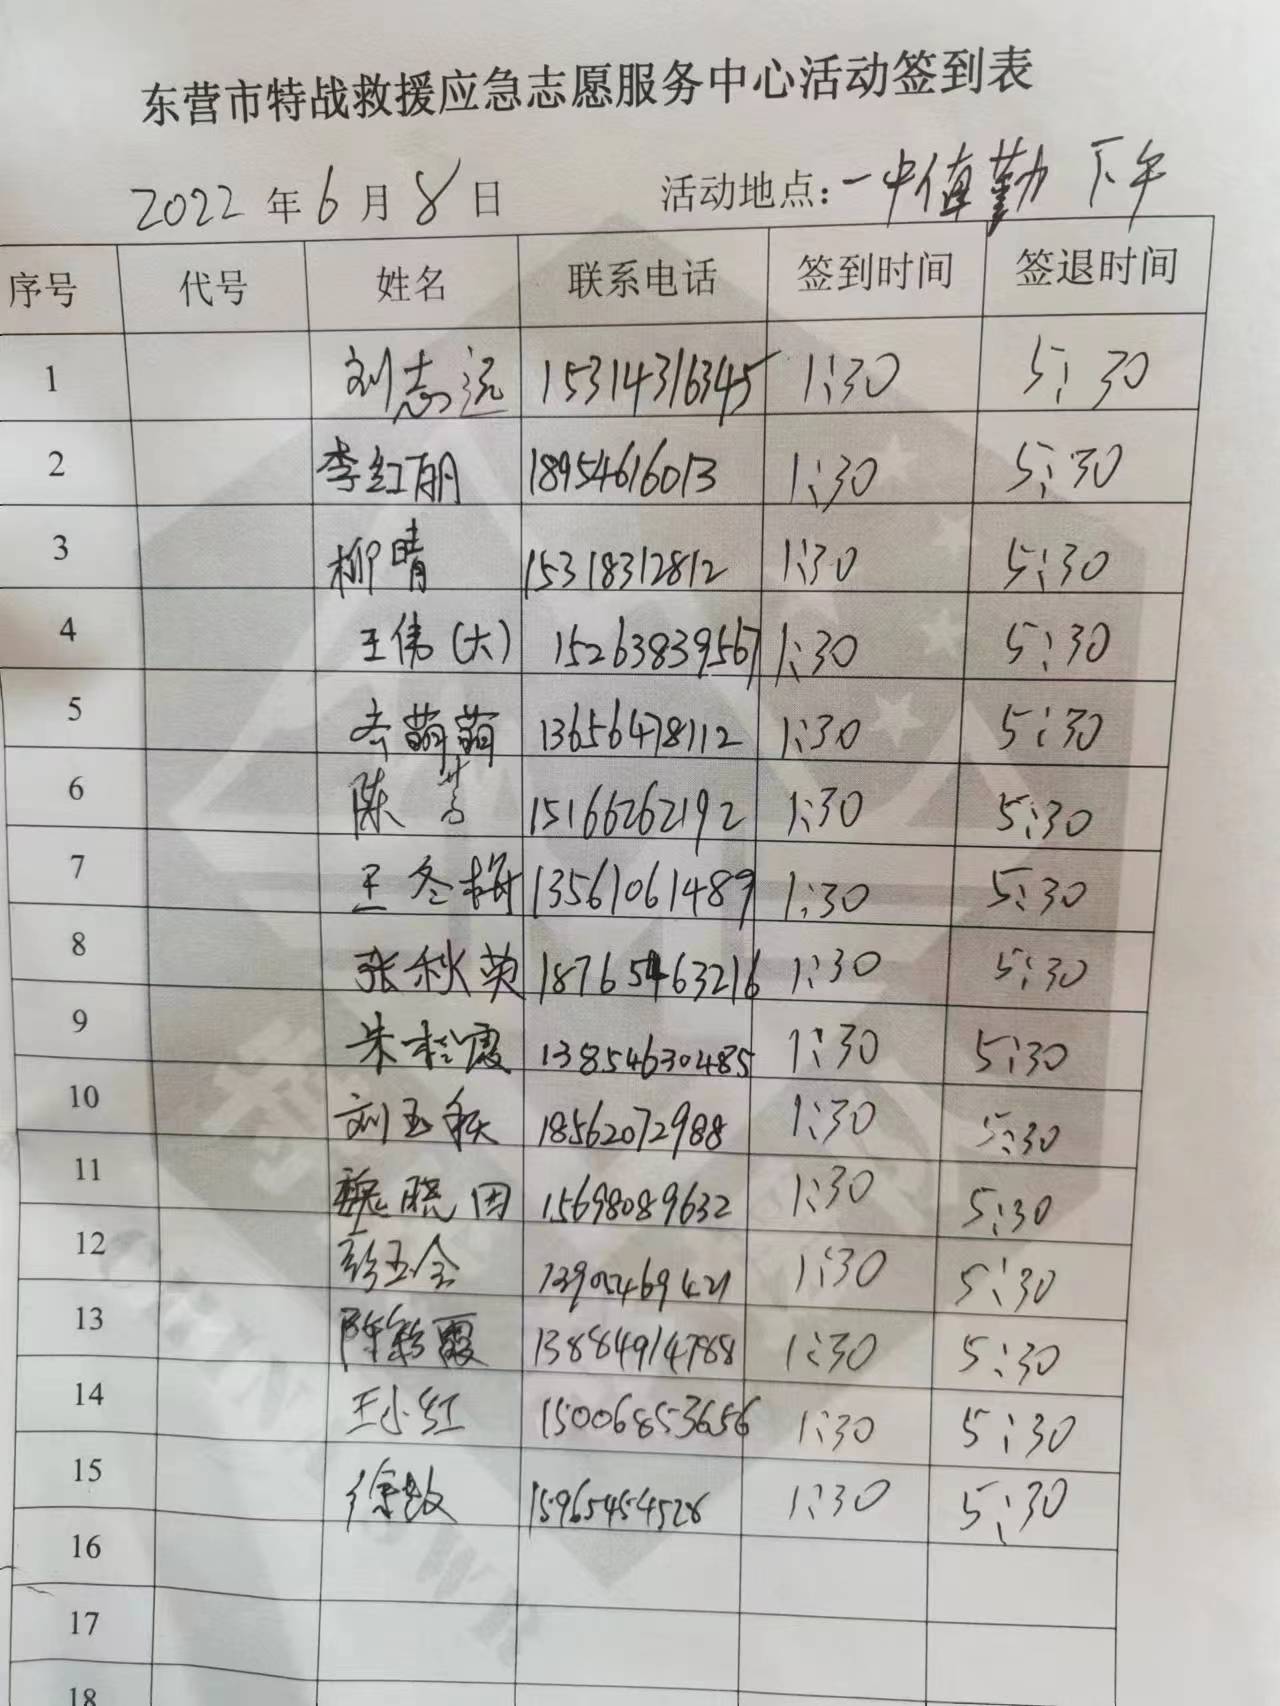 东营市特战救援应急志愿服务中心活动签到表
2022年6月8日 活动地点:一中值勤 下午
序号 代号 姓名 联系电话 签到时间 签退时间
1 刘志远 15314316345 1:30 5:30
2 李红丽 18954616013 1:30 5:30
3 柳晴 15318312812 1:30 5:30
4 王伟(大) 15263839567 1:30 5:30
5 萌萌 13656478112 1:30 5:30
6 陈芳 15166262192 1:30 5:30
7 王冬梅 13561061489 1:30 5:30
8 张秋英 18765463216 1:30 5:30
9 朱桂霞 13854630485 1:30 5:30
10 刘玉秋 18562072988 1:30 5:30
11 魏晓田 15698089632 1:30 5:30
12 彭玉金 1:30 5:30
13 陈彩霞 13884914788 1:30 5:30
14 王小红 15006853656 1:30 5:30
15 徐敏 15965454526 1:30 5:30
16
17
18